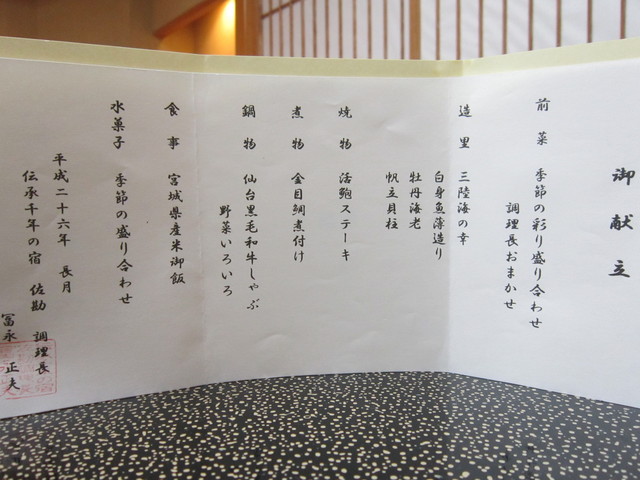 御献立
前菜 季節の彩り盛り合わせ
調理長おまかせ
造里 三陸海の幸
白身魚薄造り
牡丹海老
帆立貝柱
焼物 活鮑ステーキ
煮物 金目鯛煮付け
鍋物 仙台黒毛和牛しゃぶ
野菜いろいろ
食事 宮城県産米御飯
水菓子 季節の盛り合わせ
平成二十六年 長月
伝承千年の宿 佐勘 調理長
冨永 正夫